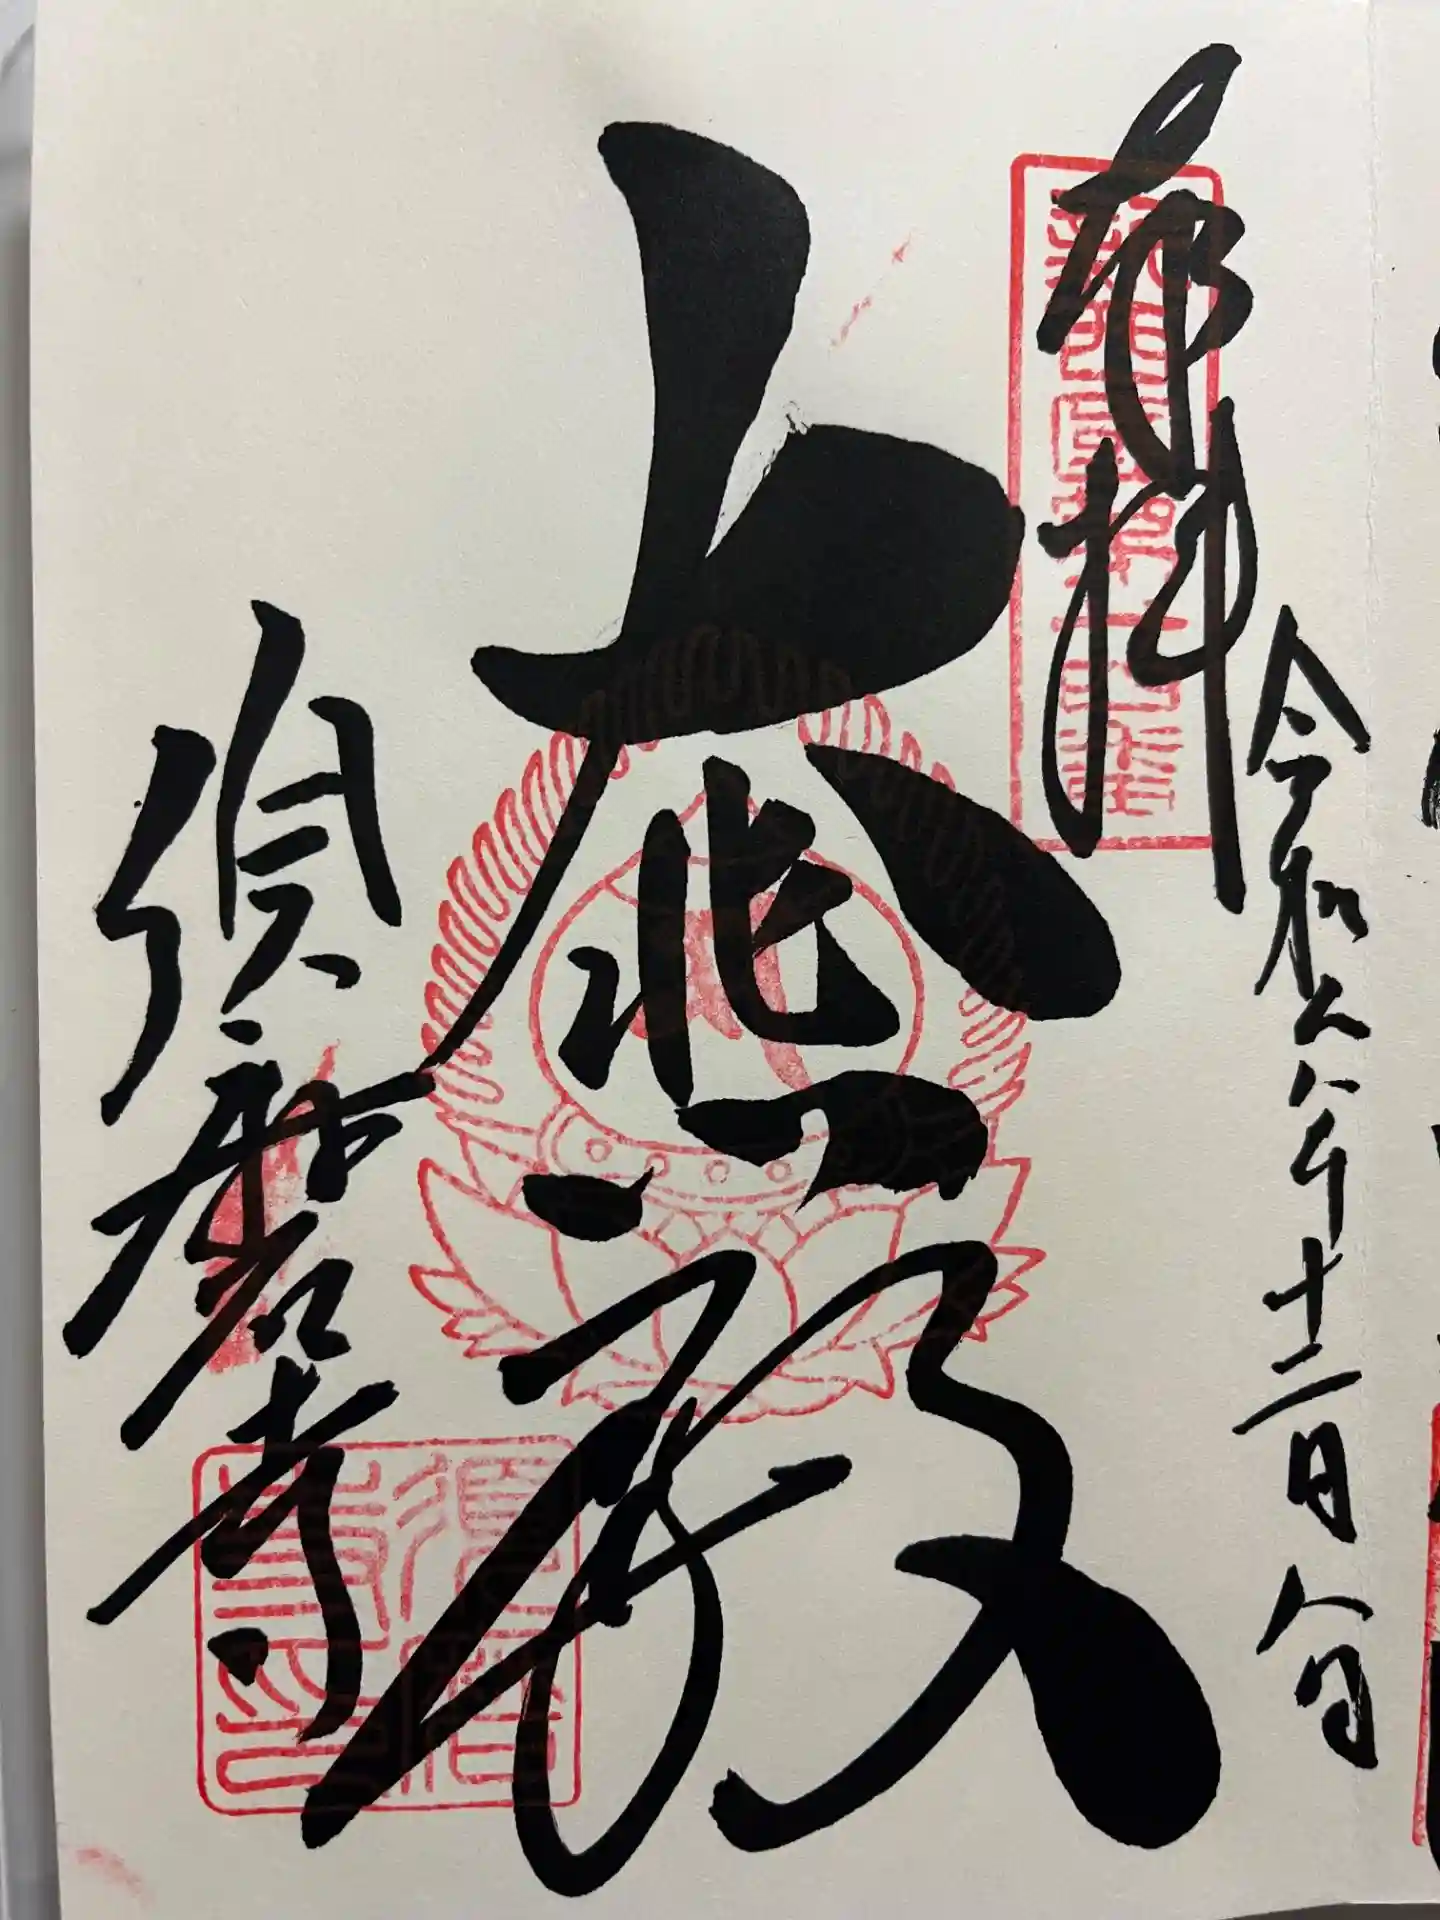 奉拝
令和六年十二月八日
大悲殿
須磨寺
須磨寺印